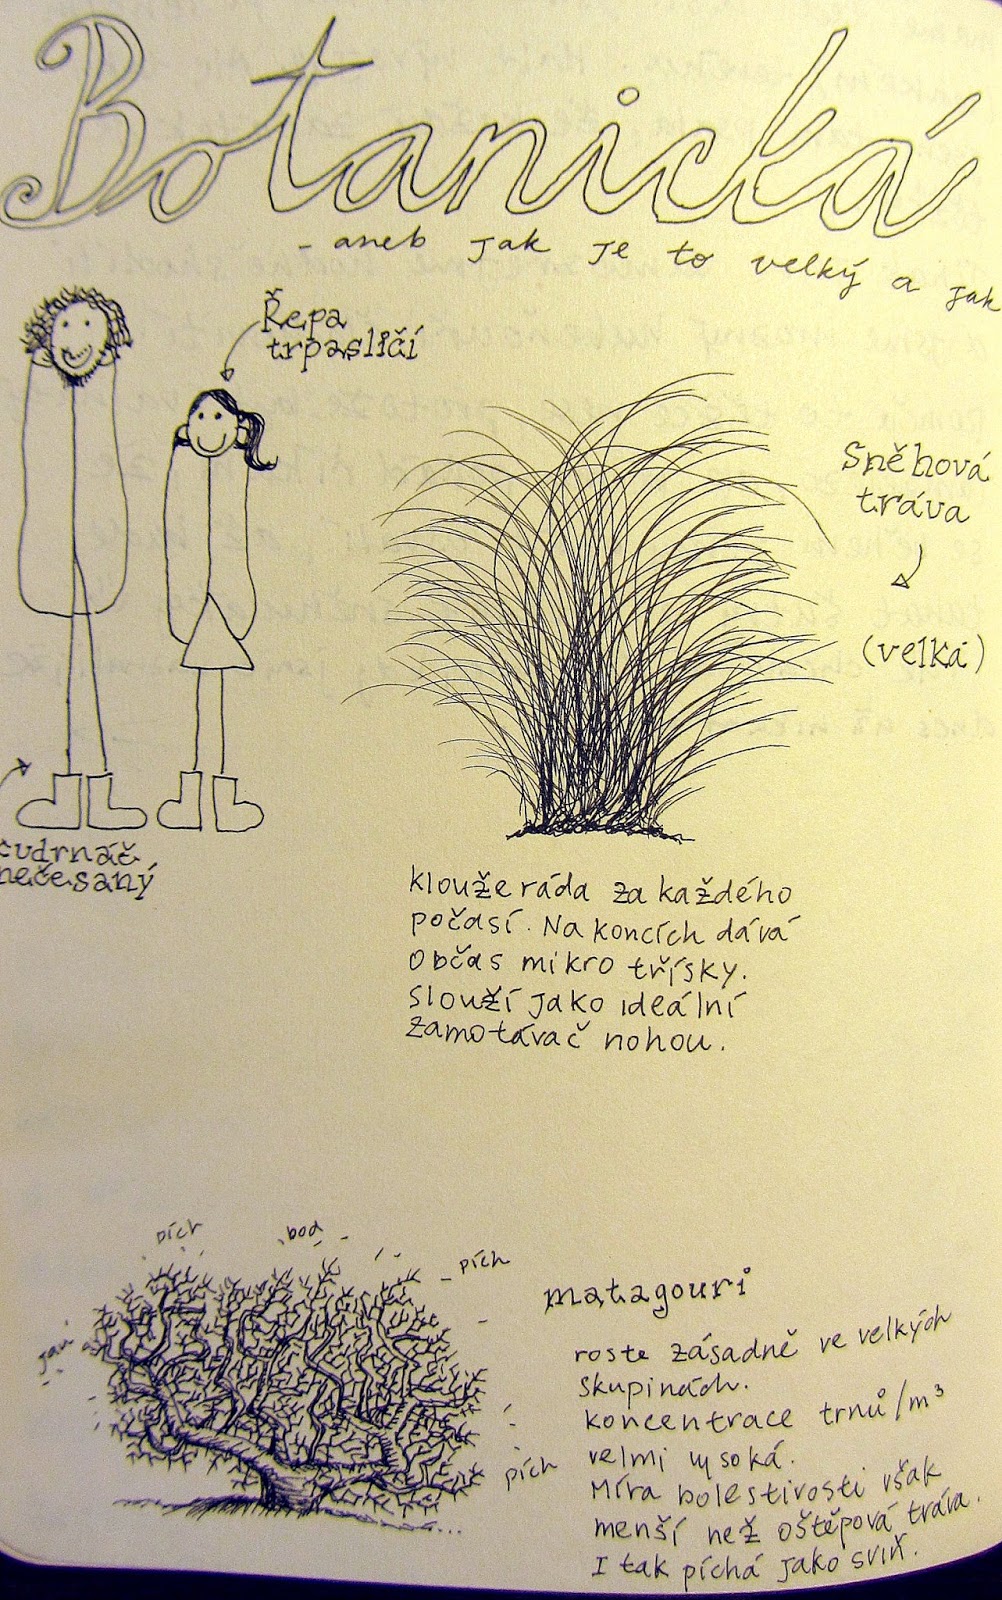 Botanická
- aneb jak je to velký a jak
Řepa
trpasličí
Sněhová
tráva
(velká)
cudrnáč
nečesaný
klouže ráda za každého
počasí. Na koncích dává
občas mikro třísky.
slouží jako ideální
zamotávač nohou.
pích
bod
pích
jau
pích
matagouri
roste zásadně ve velkých
skupinách.
koncentrace trnů/m³
velmi vysoká.
Míra bolestivosti však
menší než oštěpová tráva.
I tak píchá jako sviň.